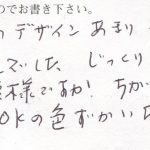 つでお書き下さい。
っ デザイン あまり
でした、 じっくり
様ですね! ちが
OKの色ずかい